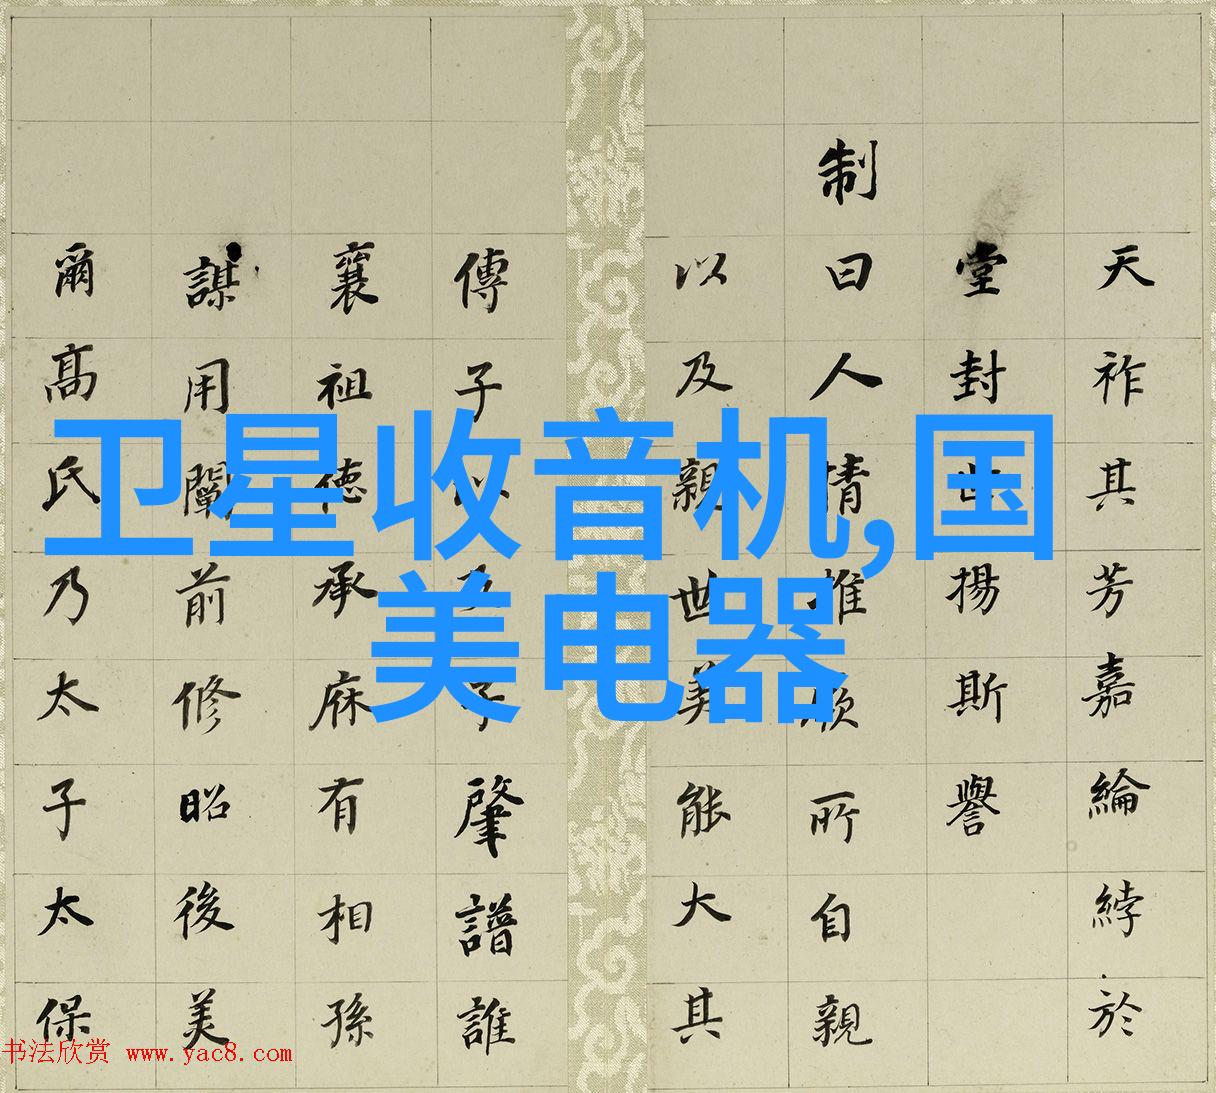 天祚其芳嘉綸綍於
堂封世揚斯譽
制曰人情推所自親
以及親世美能大其
傳子肇譜誰
襄祖德承庥有相孫
謀用闡前修昭後美
爾高氏乃太子太保
卫星收音机,国
美电器
书法欣赏 www.yac8.com